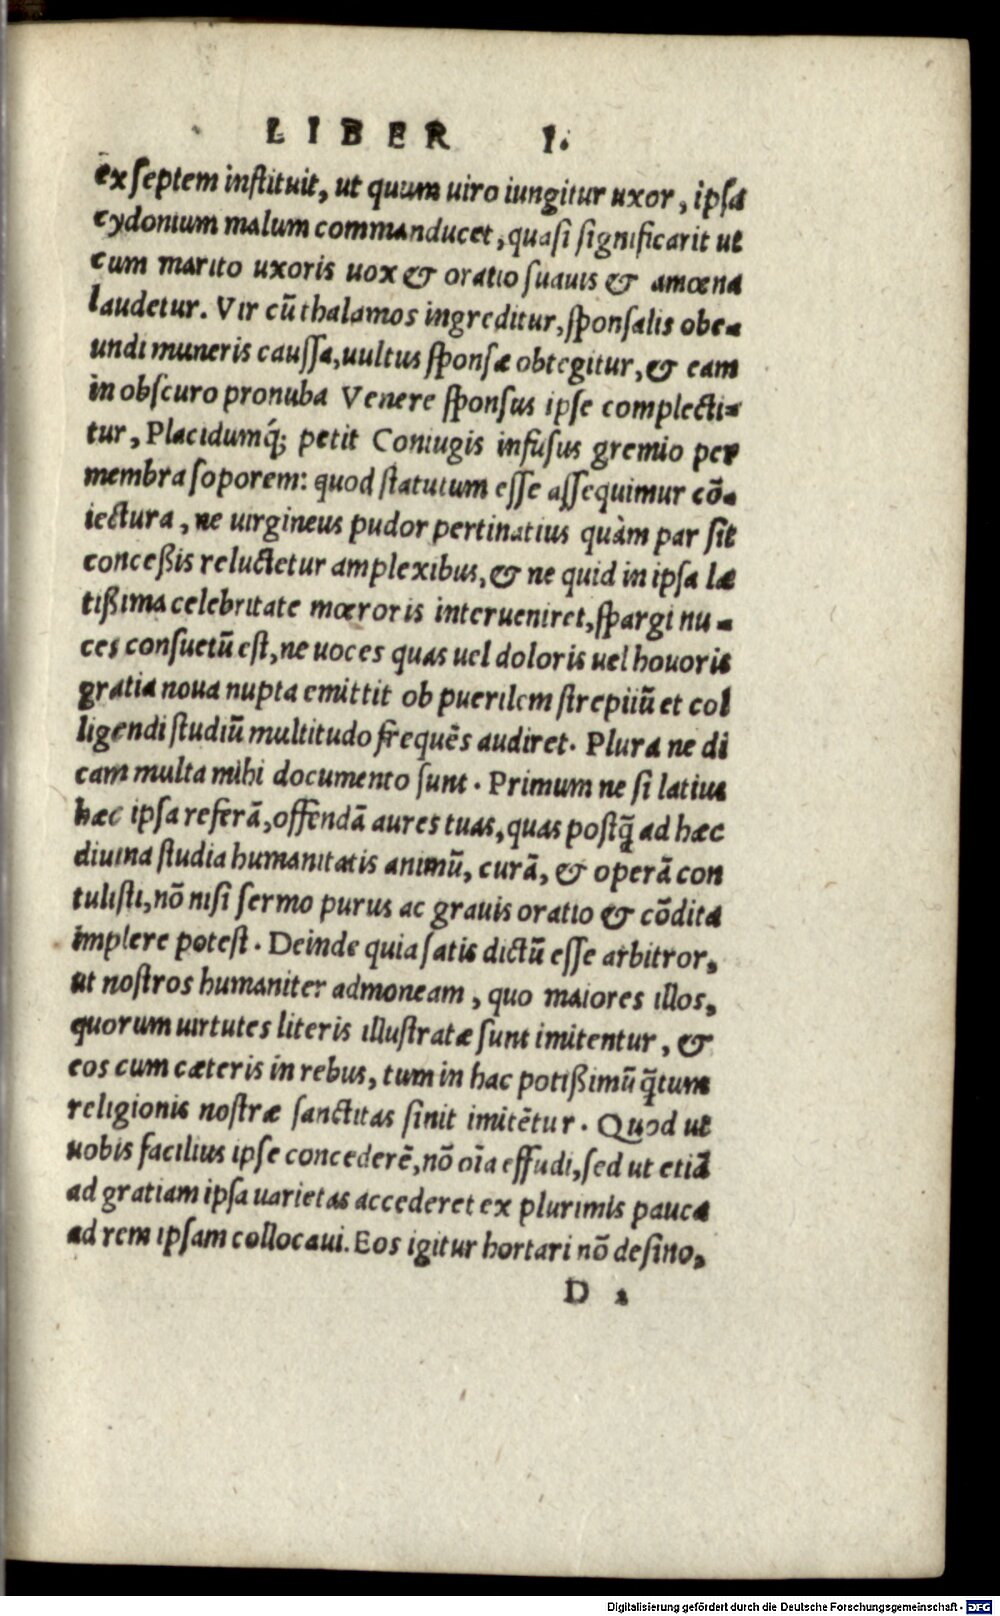 LIBER I.
ex septem instituit, ut quum uiro iungitur uxor, ipsa
cydonium malum commanducet, quasi significarit ut
cum marito uxoris uox & oratio suauis & amœna
laudetur. Vir cũ thalamos ingreditur, sponsalis obe-
undi muneris caussa, uultus sponsæ obtegitur, & eam
in obscuro pronuba Venere sponsus ipse complecti-
tur, Placidumq́; petit Coniugis infusus gremio per
membra soporem: quod statutum esse assequimur cō-
iectura, ne uirgineus pudor pertinatius quàm par sit
conceßis reluctetur amplexibus, & ne quid in ipsa læ
tißima celebritate mœroris interueniret, spargi nu-
ces consuetũ est, ne uoces quas uel doloris uel houoris
gratia noua nupta emittit ob puerilem strepitũ et col
ligendi studiũ multitudo frequẽs audiret. Plura ne di
cam multa mihi documento sunt. Primum ne si latius
hæc ipsa referã, offendã aures tuas, quas postq̃ ad hæc
diuina studia humanitatis animũ, curã, & operã con
tulisti, nõ nisi sermo purus ac grauis oratio & cõdita
implere potest. Deinde quia satis dictũ esse arbitror,
ut nostros humaniter admoneam, quo maiores illos,
quorum uirtutes literis illustratæ sunt imitentur, &
eos cum cæteris in rebus, tum in hac potißimũ q̃tum
religionis nostræ sanctitas sinit imitẽtur. Quod ut
uobis facilius ipse concederẽ, nõ oĩa effudi, sed ut etiã
ad gratiam ipsa uarietas accederet ex plurimis pauca
ad rem ipsam collocaui. Eos igitur hortari nõ desino,
D
Digitalisierung gefördert durch die Deutsche Forschungsgemeinschaft - DFG